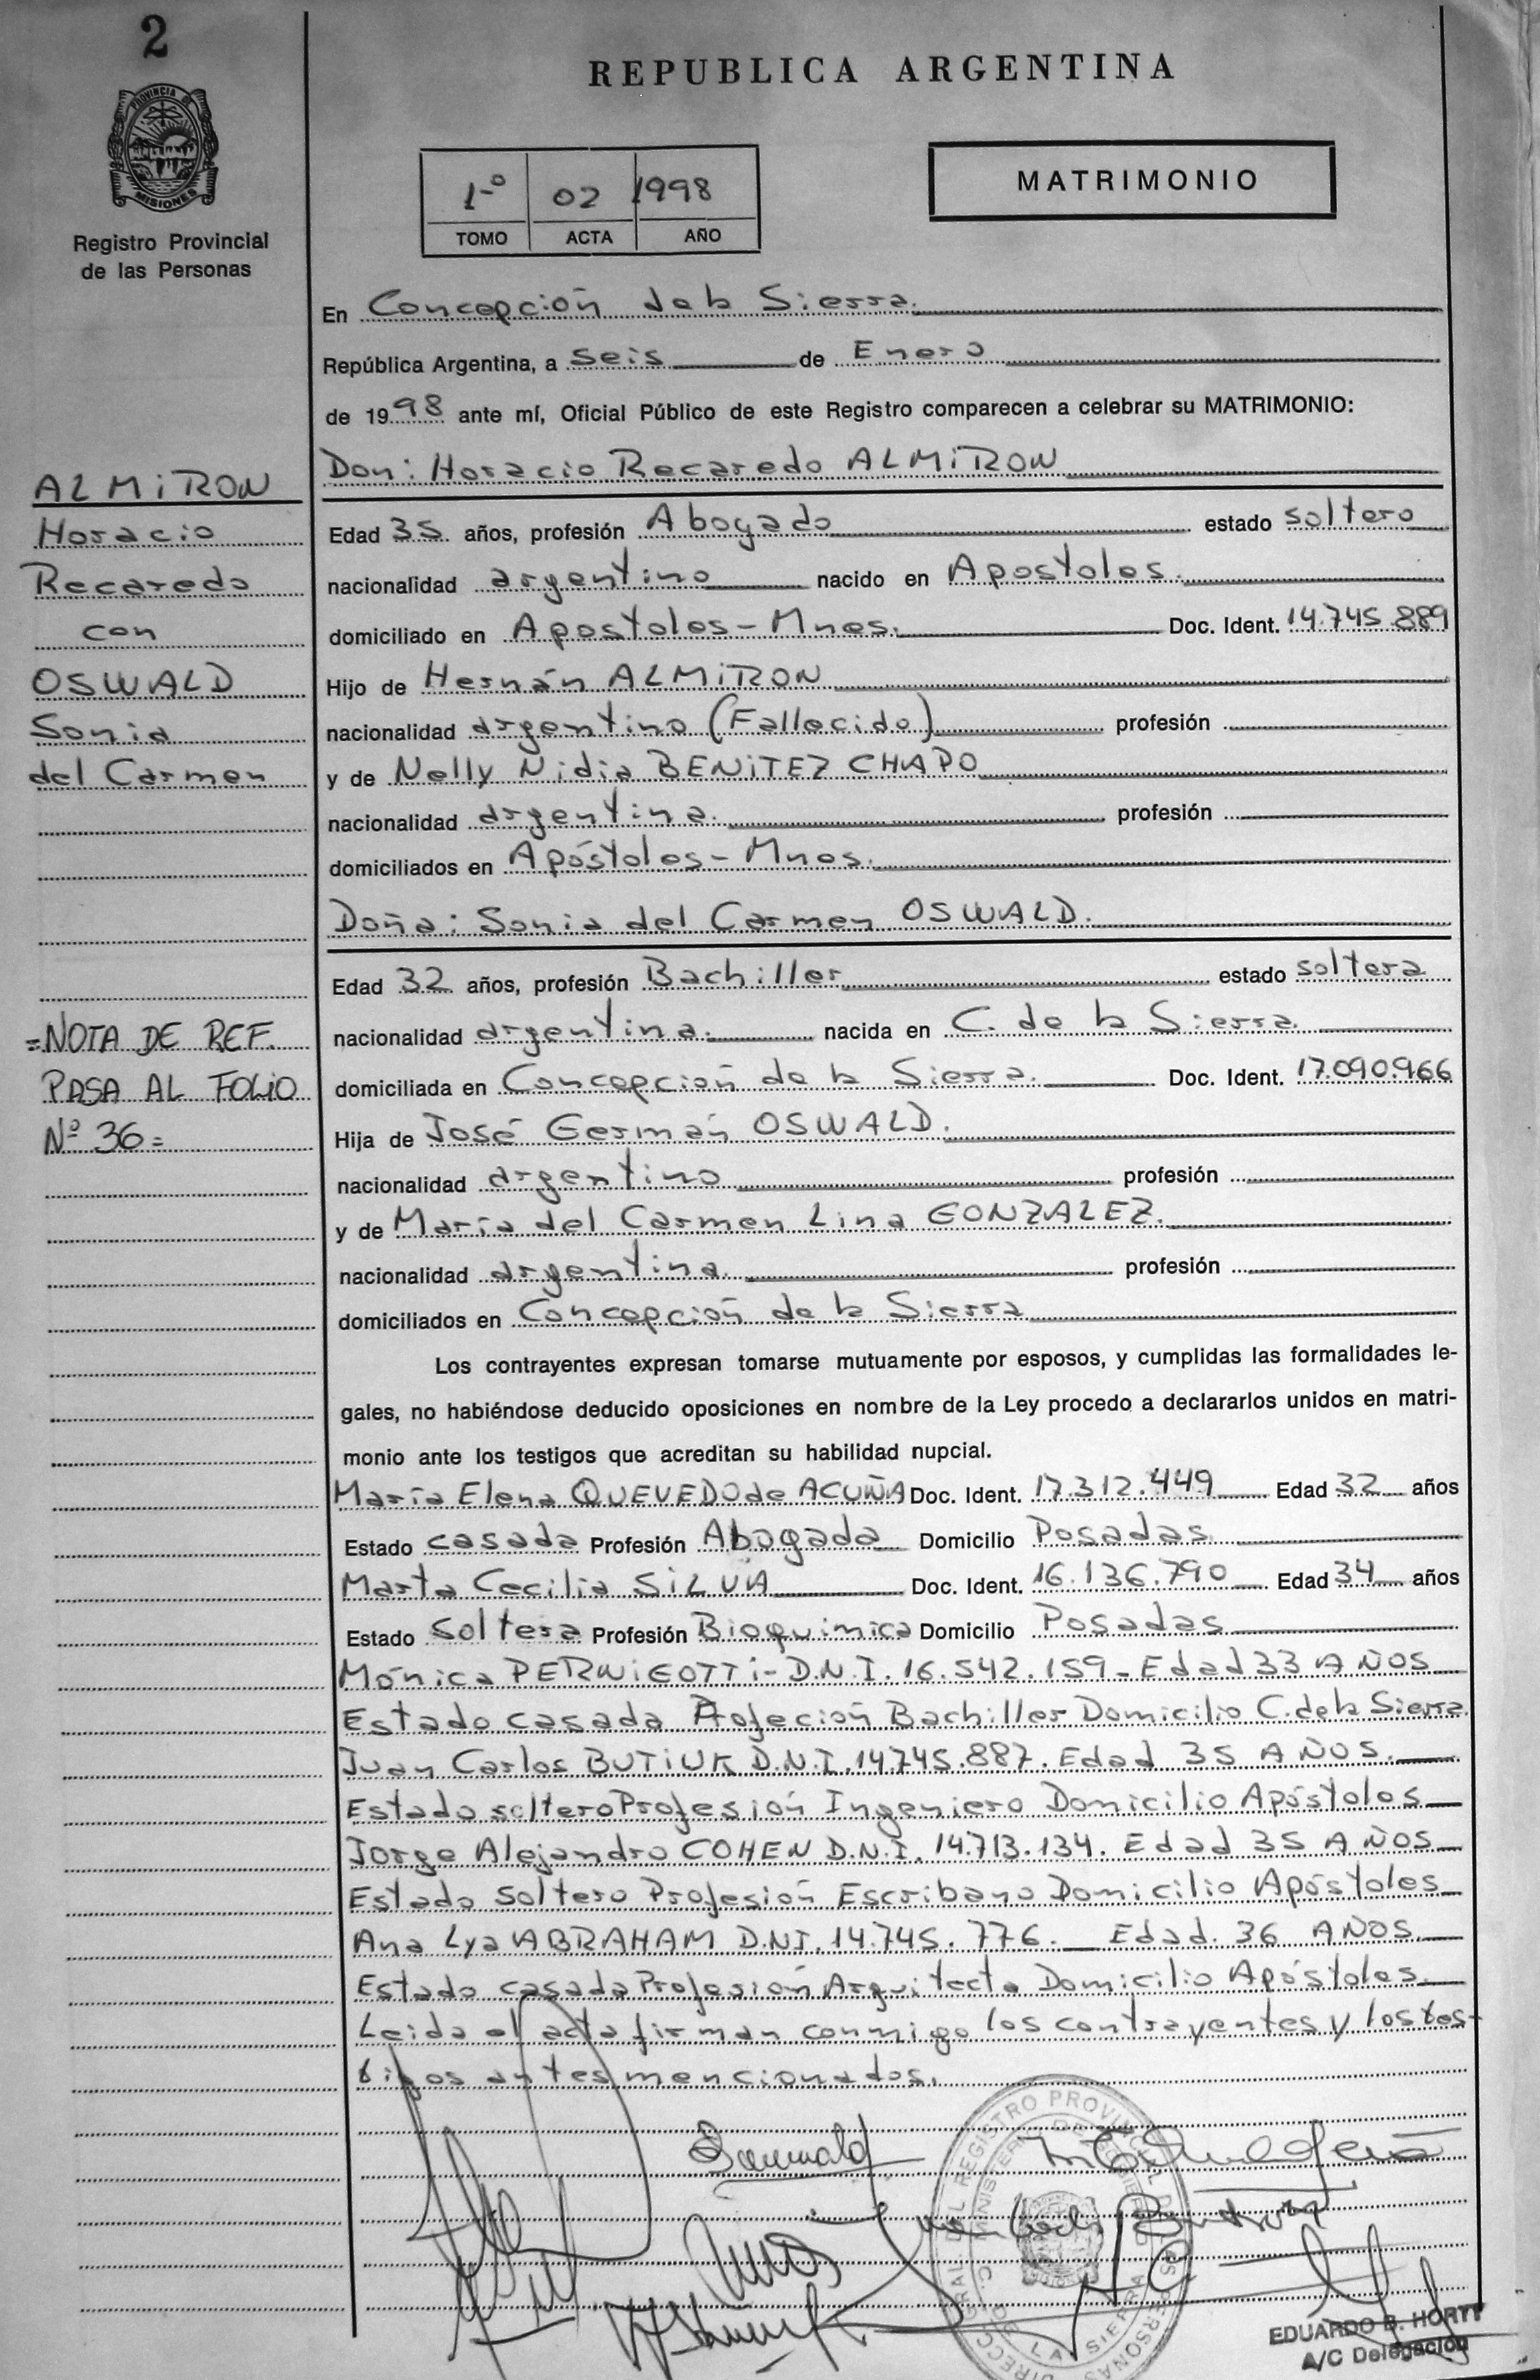 2
REPUBLICA ARGENTINA
PROVINCIA DE
MISIONES
Registro Provincial
de las Personas
1º 02 1998
TOMO ACTA AÑO
MATRIMONIO
En Concepción de la Sierra.
República Argentina, a seis de Enero
de 1998 ante mí, Oficial Público de este Registro comparecen a celebrar su MATRIMONIO:
Don: Horacio Recaredo ALMiRON
ALMiRON
Horacio
Recaredo
con
OSWALD
Sonia
del Carmen
Edad 35 años, profesión Abogado estado soltero
nacionalidad argentino nacido en Apostoles.
domiciliado en Apostoles - Mnes. Doc. Ident. 14.745.889
Hijo de Hernán ALMiRON
nacionalidad argentino (Fallecido) profesión
y de Nelly Nidia BENiTEZ CHAPO
nacionalidad argentina. profesión
domiciliados en Apóstoles - Mnes.
Doña: Sonia del Carmen OSWALD.
Edad 32 años, profesión Bachiller estado soltera
nacionalidad argentina. nacida en C. de la Sierra.
domiciliada en Concepción de la Sierra. Doc. Ident. 17.090.966
=NOTA DE REF.
PASA AL FOLIO
Nº 36=
Hija de José Germán OSWALD.
nacionalidad argentino profesión
y de María del Carmen Lina GONZALEZ.
nacionalidad argentina. profesión
domiciliados en Concepción de la Sierra
Los contrayentes expresan tomarse mutuamente por esposos, y cumplidas las formalidades le-
gales, no habiéndose deducido oposiciones en nombre de la Ley procedo a declararlos unidos en matri-
monio ante los testigos que acreditan su habilidad nupcial.
María Elena QUEVEDO de ACUÑA Doc. Ident. 17.312.449 Edad 32 años
Estado casada Profesión Abogada Domicilio Posadas.
Marta Cecilia SiLVA Doc. Ident. 16.136.790 Edad 34 años
Estado soltera Profesión Bioquimica Domicilio Posadas
Mónica PERNiGOTTi - D.N.I. 16.542.159 - Edad 33 AÑOS
Estado casada Profeción Bachiller Domicilio C. de la Sierra.
Juan Carlos BUTiUK D.N.I. 14.745.887. Edad 35 AÑOS.
Estado soltero Profesión Ingeniero Domicilio Apóstoles
Jorge Alejandro COHEN D.N.I. 14.713.134. Edad 35 AÑOS
Estado soltero Profesión Escribano Domicilio Apóstoles
Ana Lya ABRAHAM D.N.I. 14.745.776. Edad. 36 AÑOS.
Estado casada Profesión Arquitecta Domicilio Apóstoles
Leida el acta firman conmigo los contrayentes y los tes-
tigos antes mencionados.
DEL REGISTRO PROVINCIAL DE LAS PERSONAS
MINISTERIO DE GOBIERNO
C. DE LA SIERRA
EDUARDO B. HORTT
A/C Delegación